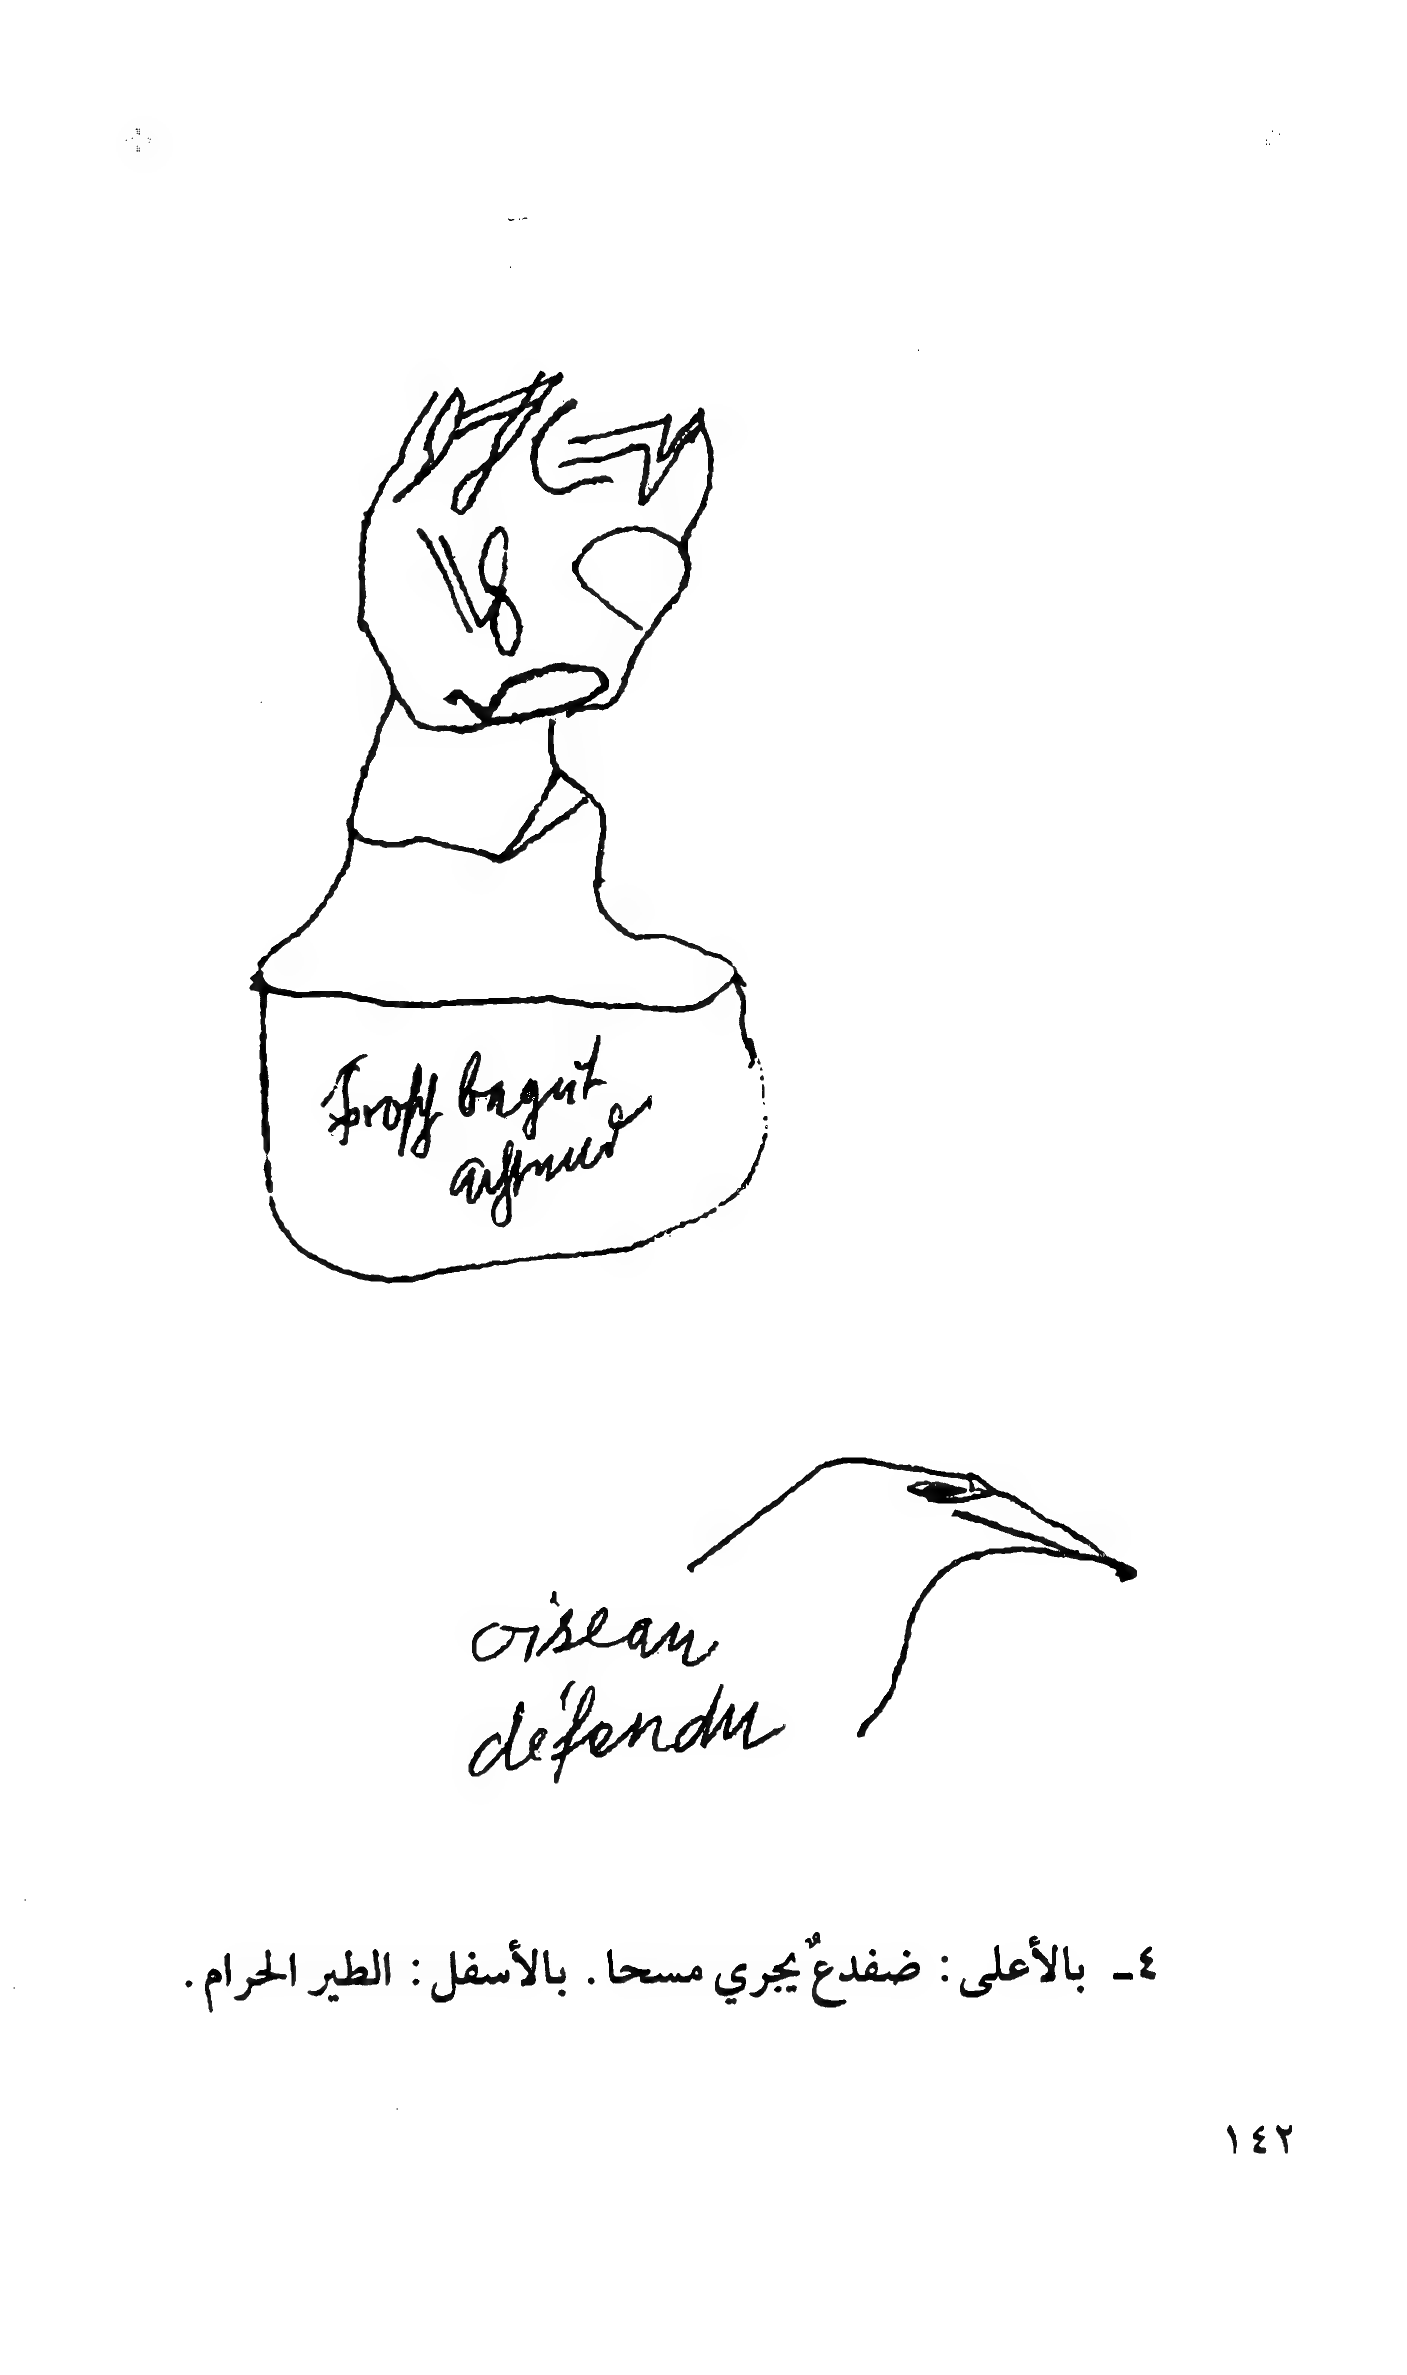 Froff bagut
oiseau
défendu
٤ـ بالأعلى : ضفدعٌ يجري مسحا . بالأسفل : الطير الحرام .
١٤٢